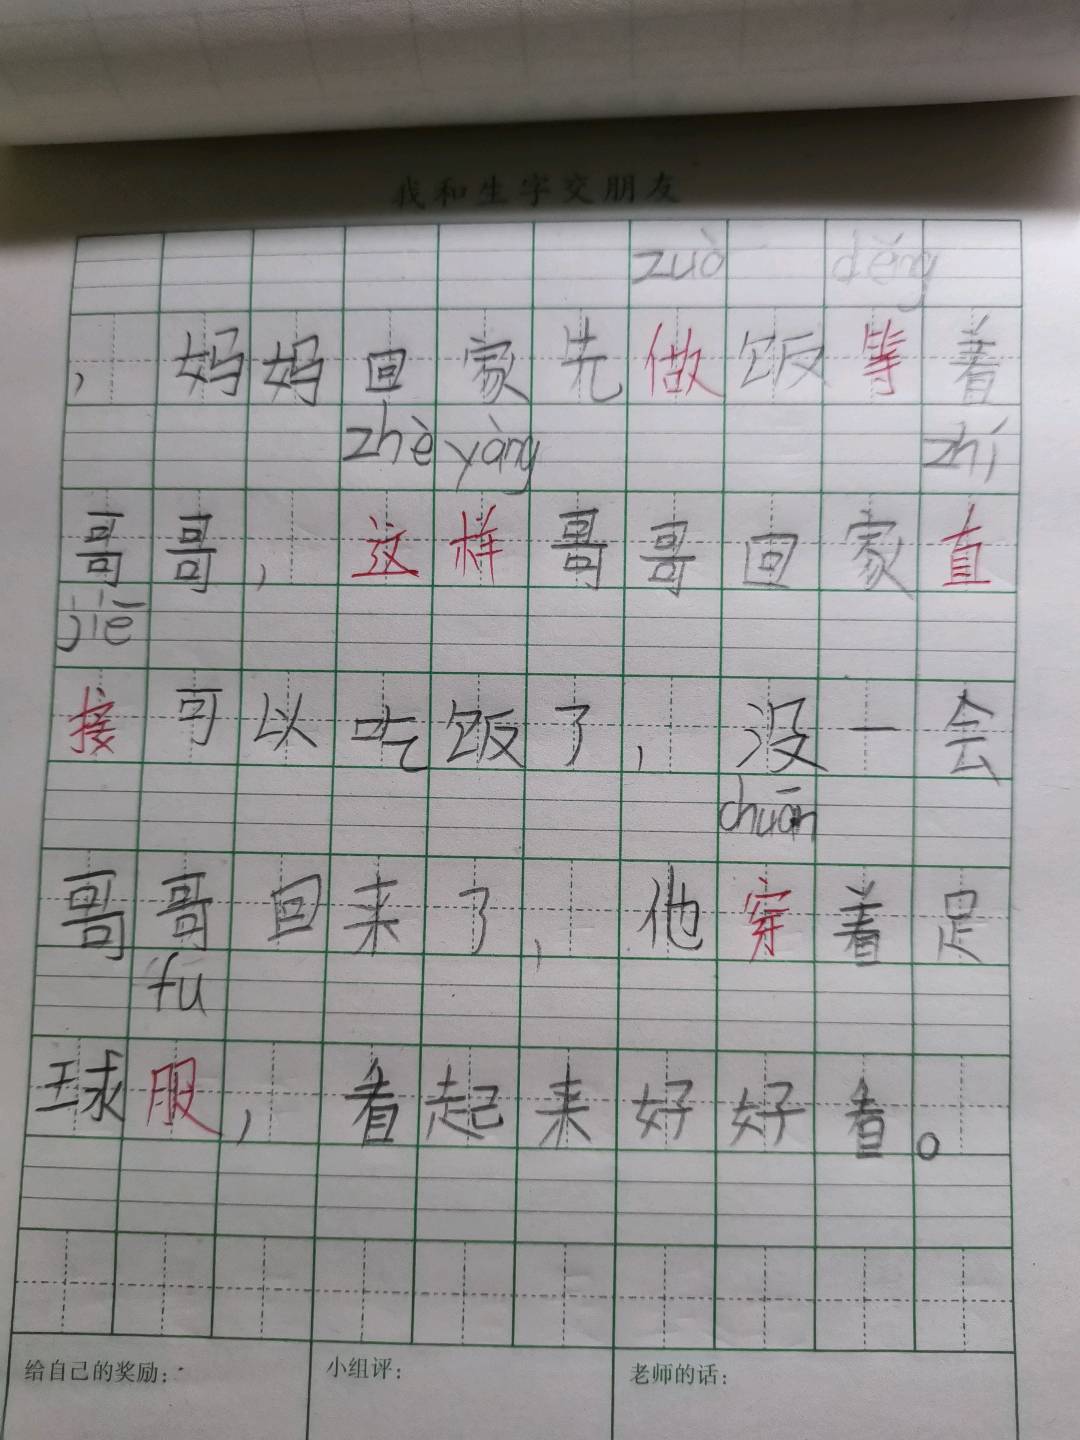 我和生字交朋友
zuò děng
，妈妈回家先做饭等着
zhè yàng zhí
哥哥，这样哥哥回家直
jiē
接可以吃饭了，没一会
chuān
哥哥回来了，他穿着足
fu
球服，看起来好好看。
给自己的奖励： 小组评： 老师的话：